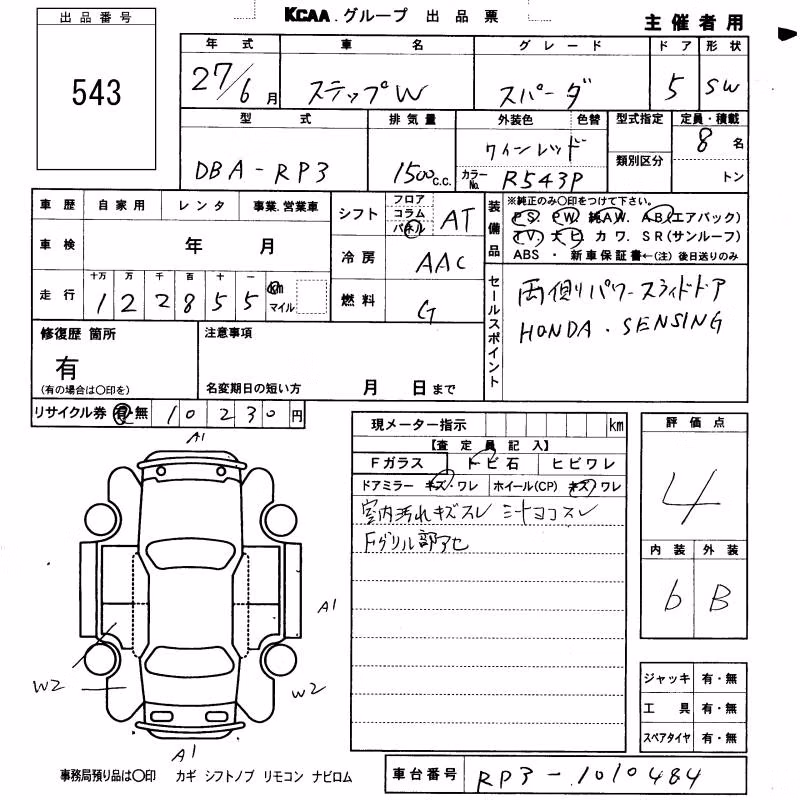 出品番号
KCAA.グループ 出品票
主催者用
543
年式 車名 グレード ドア 形状
27/6月 ステップW スパーダ 5 SW
型式 排気量 外装色 色替 型式指定 定員・積載
DBA-RP3 1500c.c. ワインレッド 8名
カラーNo. R543P 類別区分 トン
車歴 自家用 レンタ 事業.営業車
シフト フロア コラム パネル AT
装備品 ※純正のみ〇印をつけて下さい。
PS PW 純AW. AB(エアバック)
TV. 大ヒ カワ. SR(サンルーフ)
ABS ・ 新車保証書←(注) 後日送りのみ
車検 年 月
冷房 AAC
走行 十万 万 千 百 十 一
122855 km マイル
燃料 G
セールスポイント 両側パワースライドドア
HONDA.SENSING
修復歴 箇所
有
(有の場合は〇印を)
注意事項
名変期日の短い方 月 日まで
リサイクル券 有・無 10230円
現メーター指示 km
【査定員記入】
Fガラス トビ石 ヒビワレ
ドアミラー キズ・ワレ ホイール(CP) キズ・ワレ
室内汚れキズスレ シートヨコスレ
Fグリル部アセ
評価点
4
内装 外装
6 B
A1
A1
W2
W2
A1
ジャッキ 有・無
工具 有・無
スペアタイヤ 有・無
事務局預り品は〇印 カギ シフトノブ リモコン ナビロム
車台番号 RP3-1010484